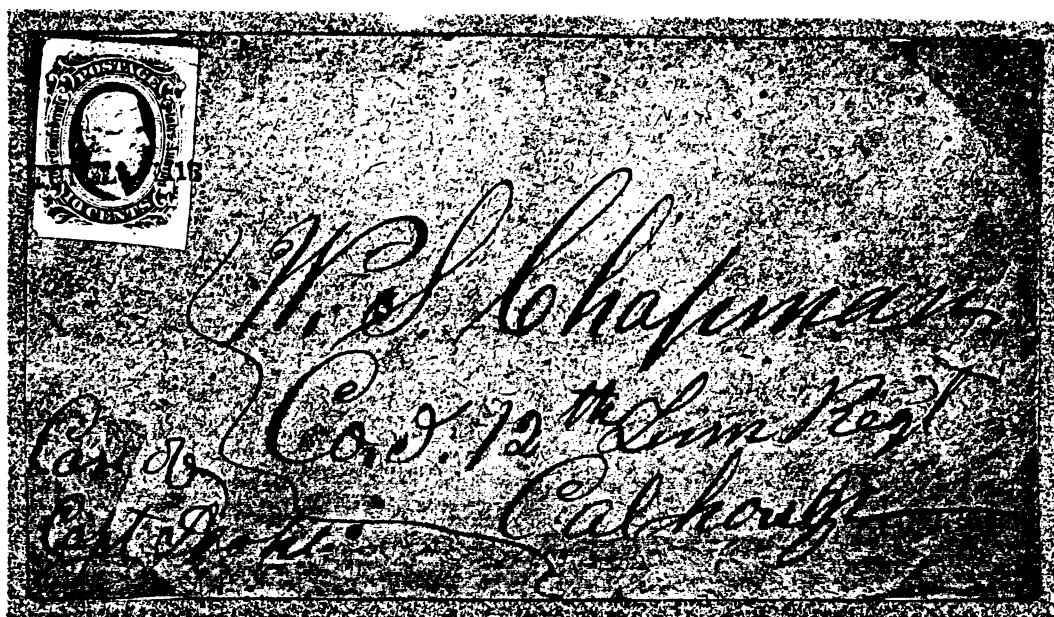 POSTAGE
10 CENTS
W. S. Chapman
Co. I. 12th Tenn Regt
Calhoun
Care of
Capt